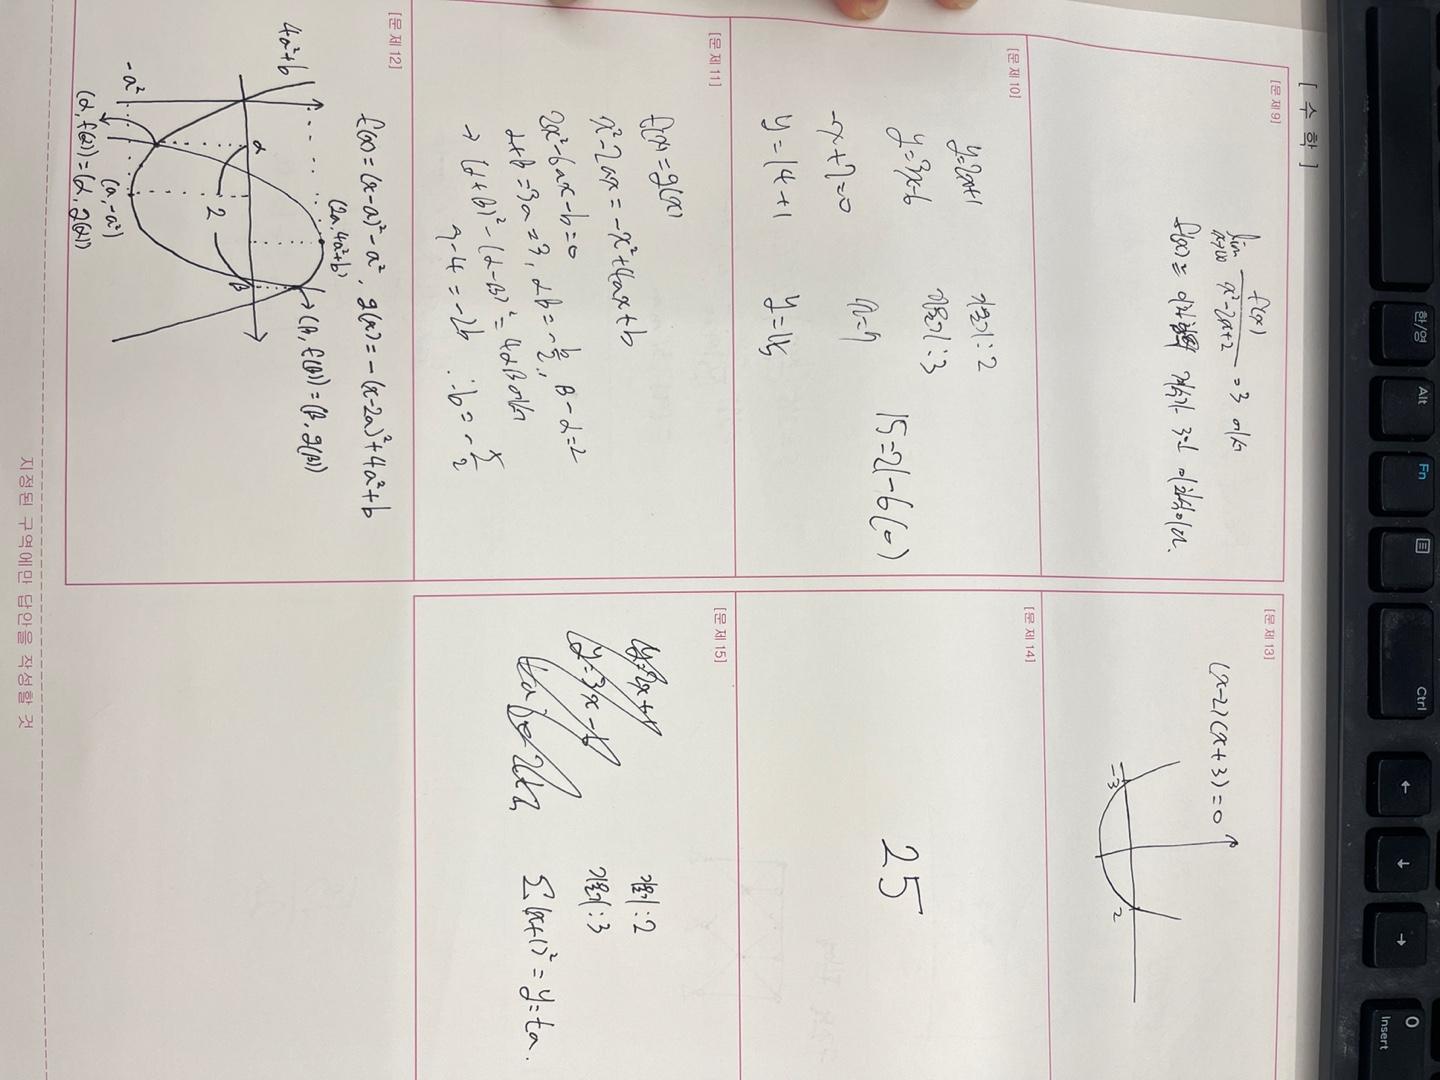 [ 수 학 ]
[문제 9]
lim x→∞ f(x) / x²-2x+2 = 3 에서
f(x)는 이차항 계수가 3인 이차식이다.
[문제 10]
y=2x+1 기울기: 2
y=3x-6 기울기: 3
-x+7=0 x=7 15=21-6(0)
y=14+1 y=15
[문제 11]
f(x)=g(x)
x²-2ax=-x²+4ax+b
2x²-6ax-b=0
α+β=3a=3, αβ=-b/2, β-α=2
→ (α+β)²-(α-β)²=4αβ에서
9-4=-2b ∴b=-5/2
[문제 12]
f(x)=(x-a)²-a², g(x)=-(x-2a)²+4a²+b
4a²+b
(2a, 4a²+b)
(β, f(β))=(β, g(β))
α
2
β
-a²
(a, -a²)
(α, f(α))=(α, g(α))
[문제 13]
(x-2)(x+3)=0
-3
2
[문제 14]
25
[문제 15]
y=2x+1
기울기: 2
y=3x-6
기울기: 3
Σ(x+1)²=y=ta.
지정된 구역에만 답안을 작성할 것
한/영
Alt
Fn
Ctrl
←
↓
→
0
Insert